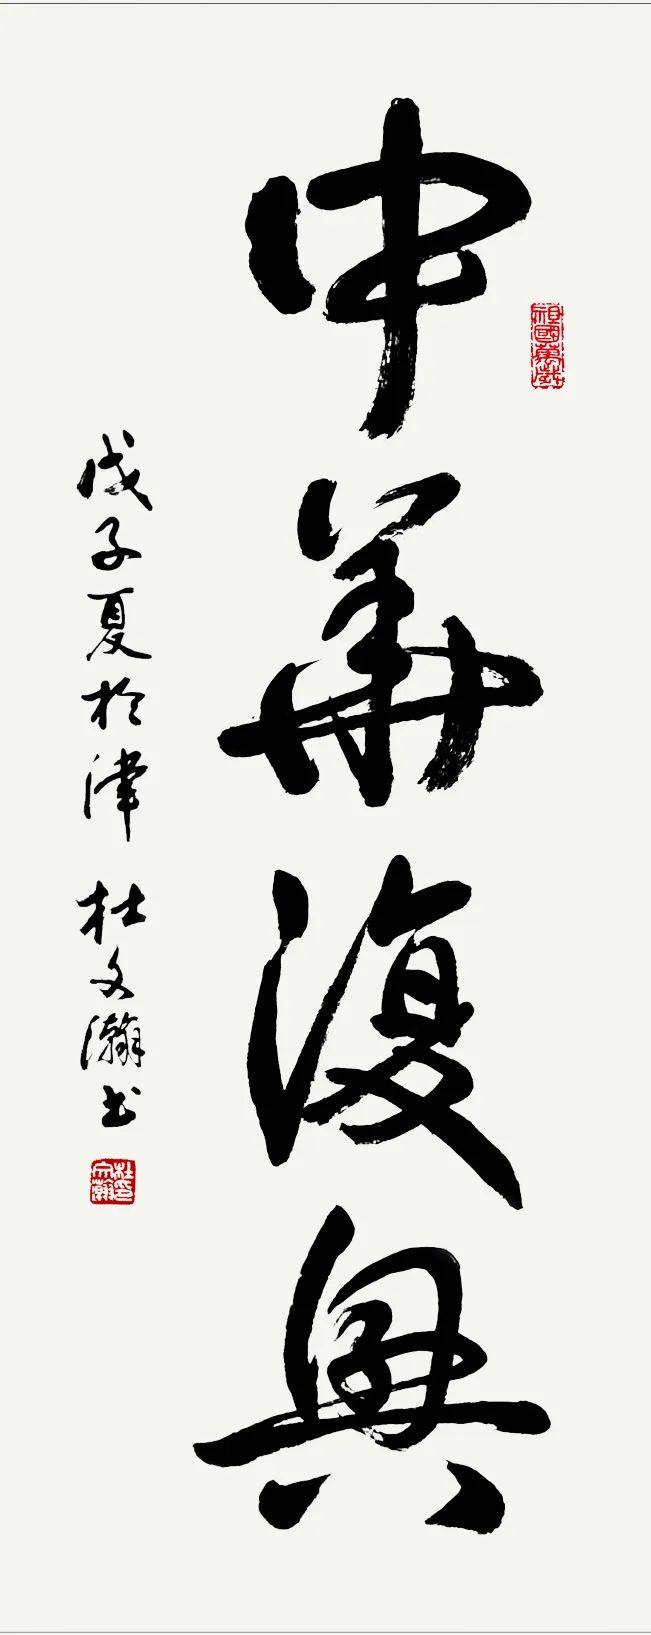 中華復興
戊子夏於津 杜文瀚书
祖國萬歲
杜文瀚印